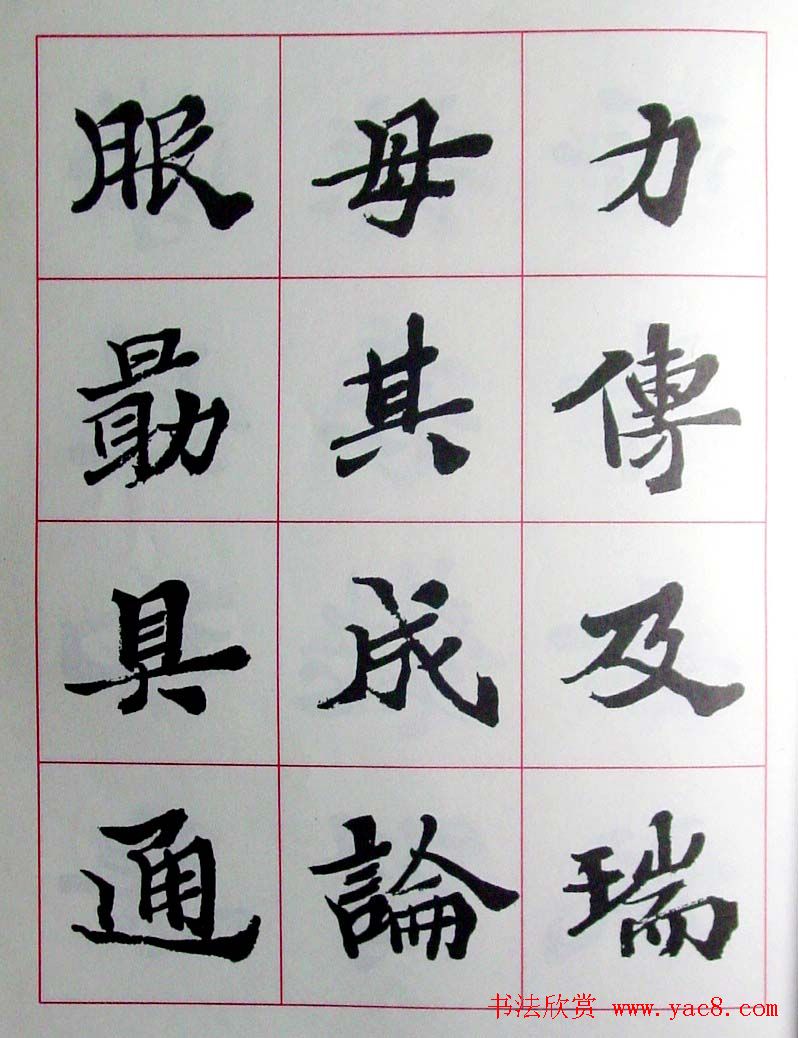 力傳及瑞
母其成論
服勗具通
书法欣赏 www.yac8.com